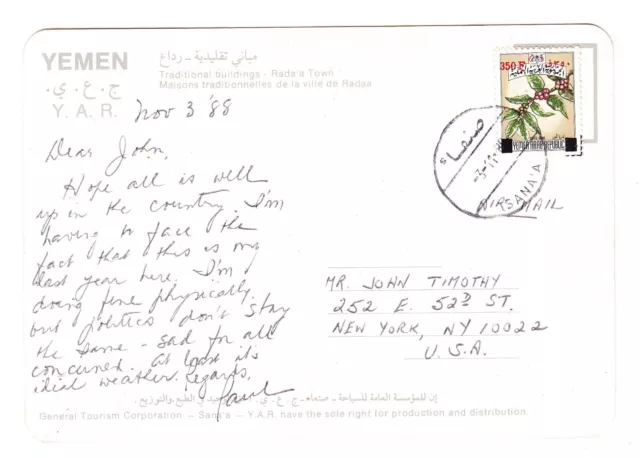 YEMEN
ج . ع . ي .
Y. A. R.
مباني تقليدية - رداع
Traditional buildings - Rada'a Town
Maisons traditionnelles de la ville de Radaa
Nov 3 '88
Dear John,
Hope all is well
up in the country. I'm
having to face the
fact that this is my
last year here. I'm
doing fine physically
but politics don't stay
the same - sad for all
concerned. At least it's
idial weather. Regards,
Paul
350 F
YEMEN ARAB REPUBLIC
صنعاء
SANA'A
AIR MAIL
MR. JOHN TIMOTHY
252 E. 52D ST.
NEW YORK, NY 10022
U.S.A.
إن للمؤسسة العامة للسياحة - صنعاء - ج.ع.ي. الطبع والتوزيع.
General Tourism Corporation - Sana'a - Y.A.R. have the sole right for production and distribution.